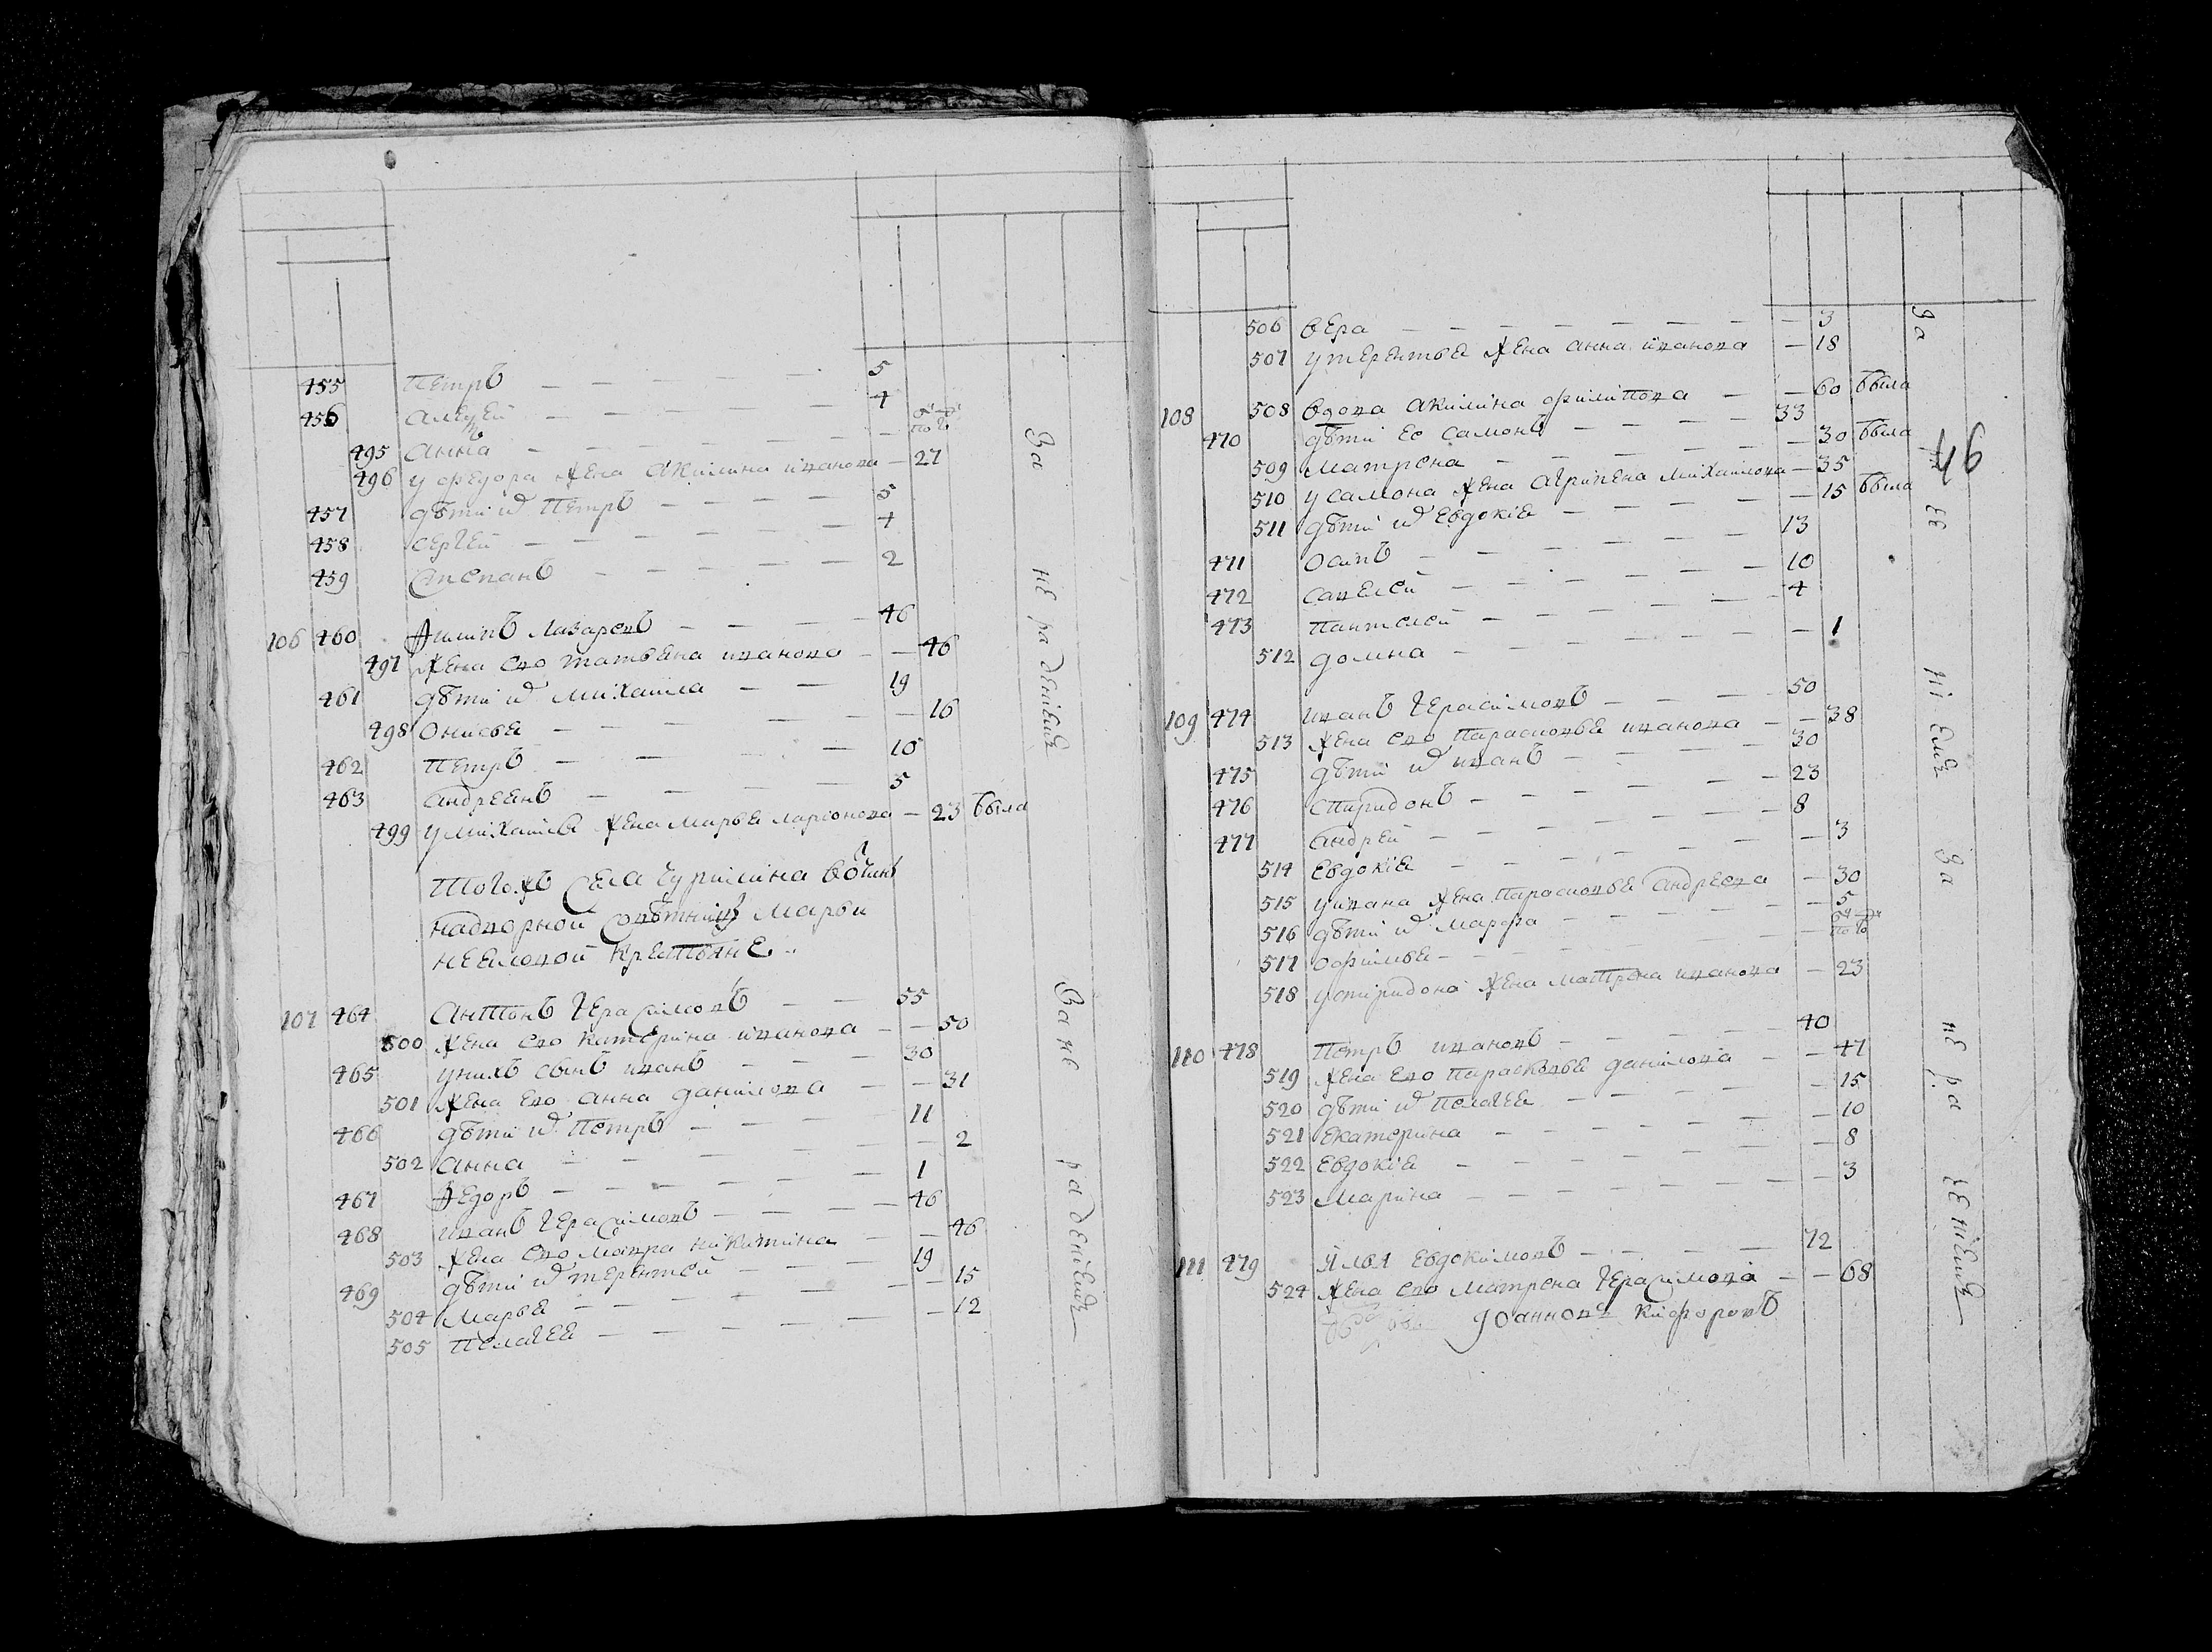 455 Петръ — 5
456 Алеѯей — 4
495 Анна —
496 у федора жена акилина иванова — 27
457 дѣти ихъ Петръ — 5
458 Сергей — 4
459 Степанъ — 2
106 460 Филипъ Лазаревъ — 46
497 жена ево татьяна иванова — 46
461 дѣти ихъ михаила — 19
498 Онисья — 16
462 Петръ — 10
463 андреянъ — 5
499 у михаилы жена марья ларионова — 23 была
За не ра дениемъ
Того жъ Села чурилина
надворной Совѣтницы Марьи
крестьяне
107 464 Антонъ Герасимовъ — 55
500 жена ево катерина иванова — 50
465 у нихъ сынъ иванъ — 30
501 жена ево анна данилова — 31
466 дѣти ихъ Петръ — 11
502 анна — 2
467 Федоръ — 1
468 иванъ Герасимовъ — 46
503 жена ево мавра никитина — 46
469 дѣти ихъ терентей — 19
504 марья — 15
505 Пелагея — 12
За не ра дениемъ
94
506 вера — 3
507 у терентья жена анна иванова — 18
108 508 вдова акилина филипова — 60 была
470 дѣти ее самонъ — 33
509 матрена — 30 была
510 у самона жена агрипена михаилова — 35
511 дѣти ихъ евдокия — 15 была
471 осипъ — 13
472 савелей — 10
473 пантелей — 4
512 домна — 1
109 474 иванъ Герасимовъ — 50
513 жена ево парасковья иванова — 38
475 дѣти ихъ иванъ — 30
476 спиридонъ — 23
477 андрей — 8
514 евдокия — 3
515 у ивана жена парасковья андреева — 30
516 дѣти ихъ марфа — 5
517 офимья —
518 у спиридона жена матрена иванова — 23
110 478 Петръ ивановъ — 40
519 жена ево парасковья данилова — 47
520 дѣти ихъ пелагея — 15
521 екатерина — 10
522 евдокия — 8
523 марина — 3
111 479 Илья евдокимовъ — 72
524 жена ево матрена Герасимова — 68
Иоанновъ
За не ра